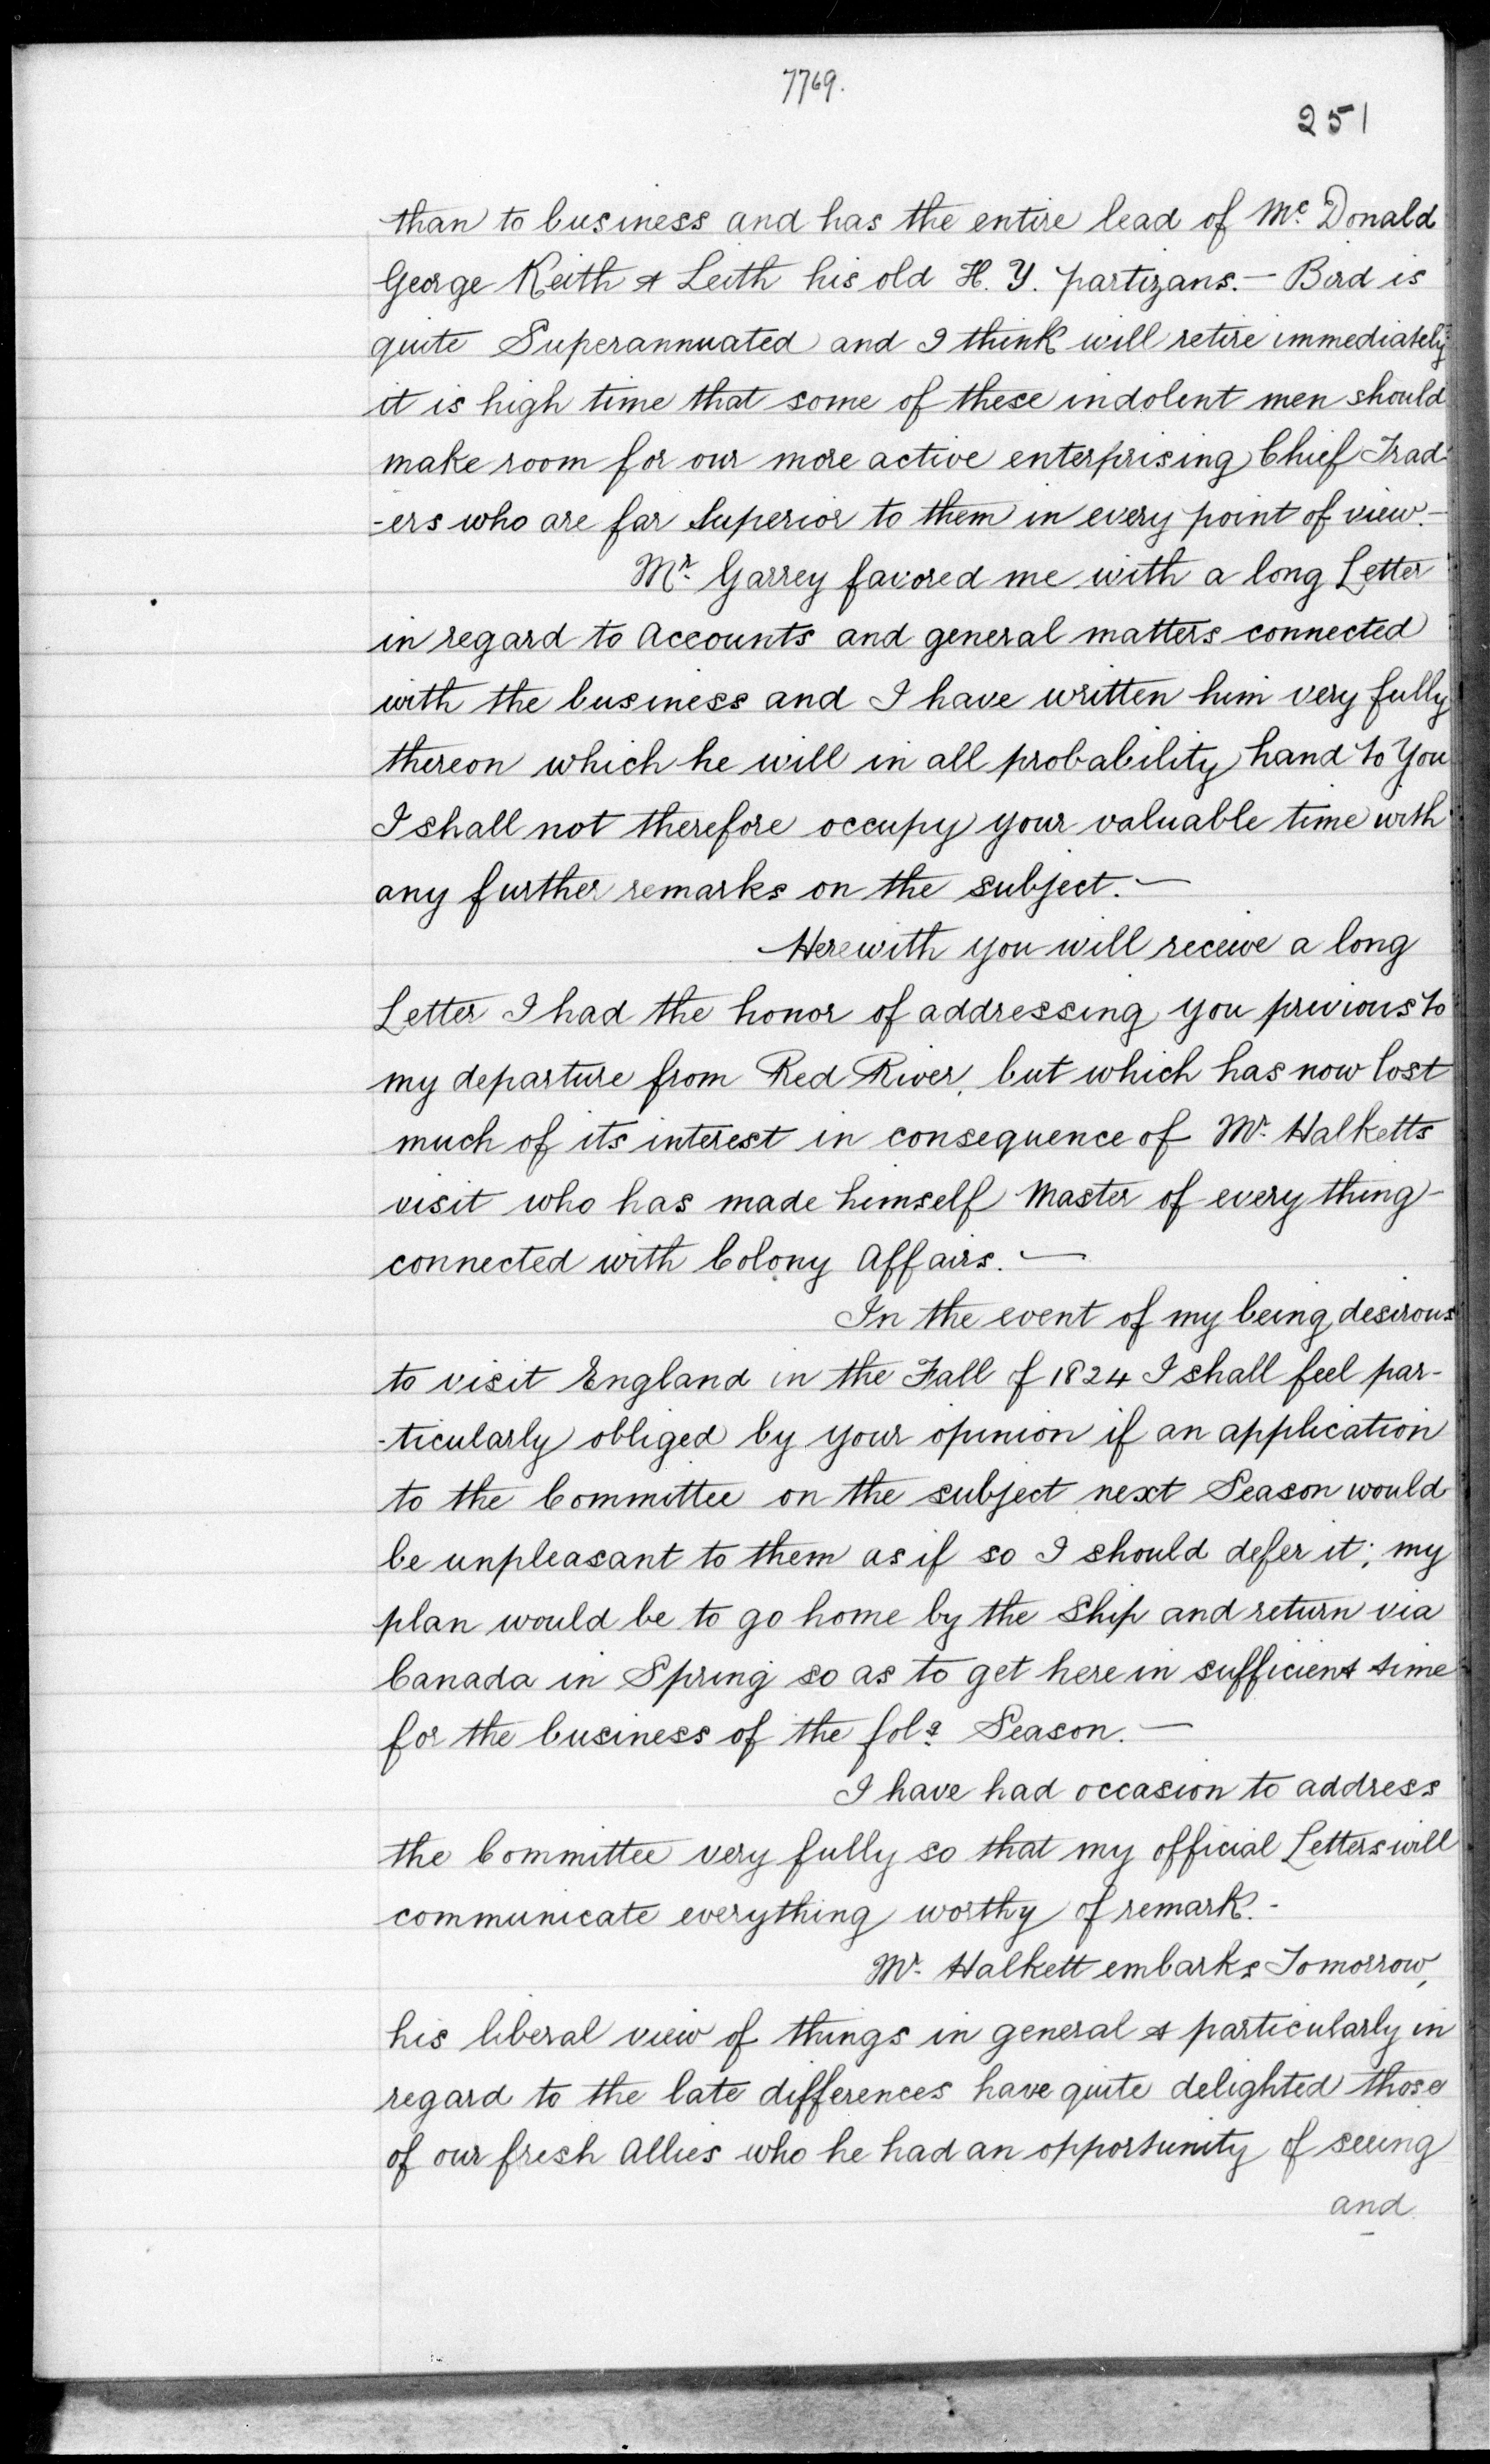 7769.
251
than to business and has the entire lead of Mc. Donald
George Keith & Leith his old H. Y. partizans. — Bird is
quite Superannuated and I think will retire immediately
it is high time that some of these indolent men should
make room for our more active enterprising Chief Trad-
-ers who are far Superior to them in every point of view. —
Mr. Garrey favored me with a long Letter
in regard to Accounts and general matters connected
with the business and I have written him very fully
thereon which he will in all probability hand to You
I shall not therefore occupy your valuable time with
any further remarks on the subject. —
Herewith you will receive a long
Letter I had the honor of addressing you previous to
my departure from Red River, but which has now lost
much of its interest in consequence of Mr. Halketts
visit who has made himself Master of every thing -
connected with Colony Affairs. —
In the event of my being desirous
to visit England in the Fall of 1824 I shall feel par-
-ticularly obliged by your opinion if an application
to the Committee on the subject next Season would
be unpleasant to them as if so I should defer it; my
plan would be to go home by the Ship and return via
Canada in Spring so as to get here in sufficient time
for the business of the folg. Season. —
I have had occasion to address
the Committee very fully so that my official Letters will
communicate everything worthy of remark. -
Mr. Halkett embarks Tomorrow,
his liberal view of things in general & particularly in
regard to the late differences have quite delighted those
of our fresh Allies who he had an opportunity of seeing
and